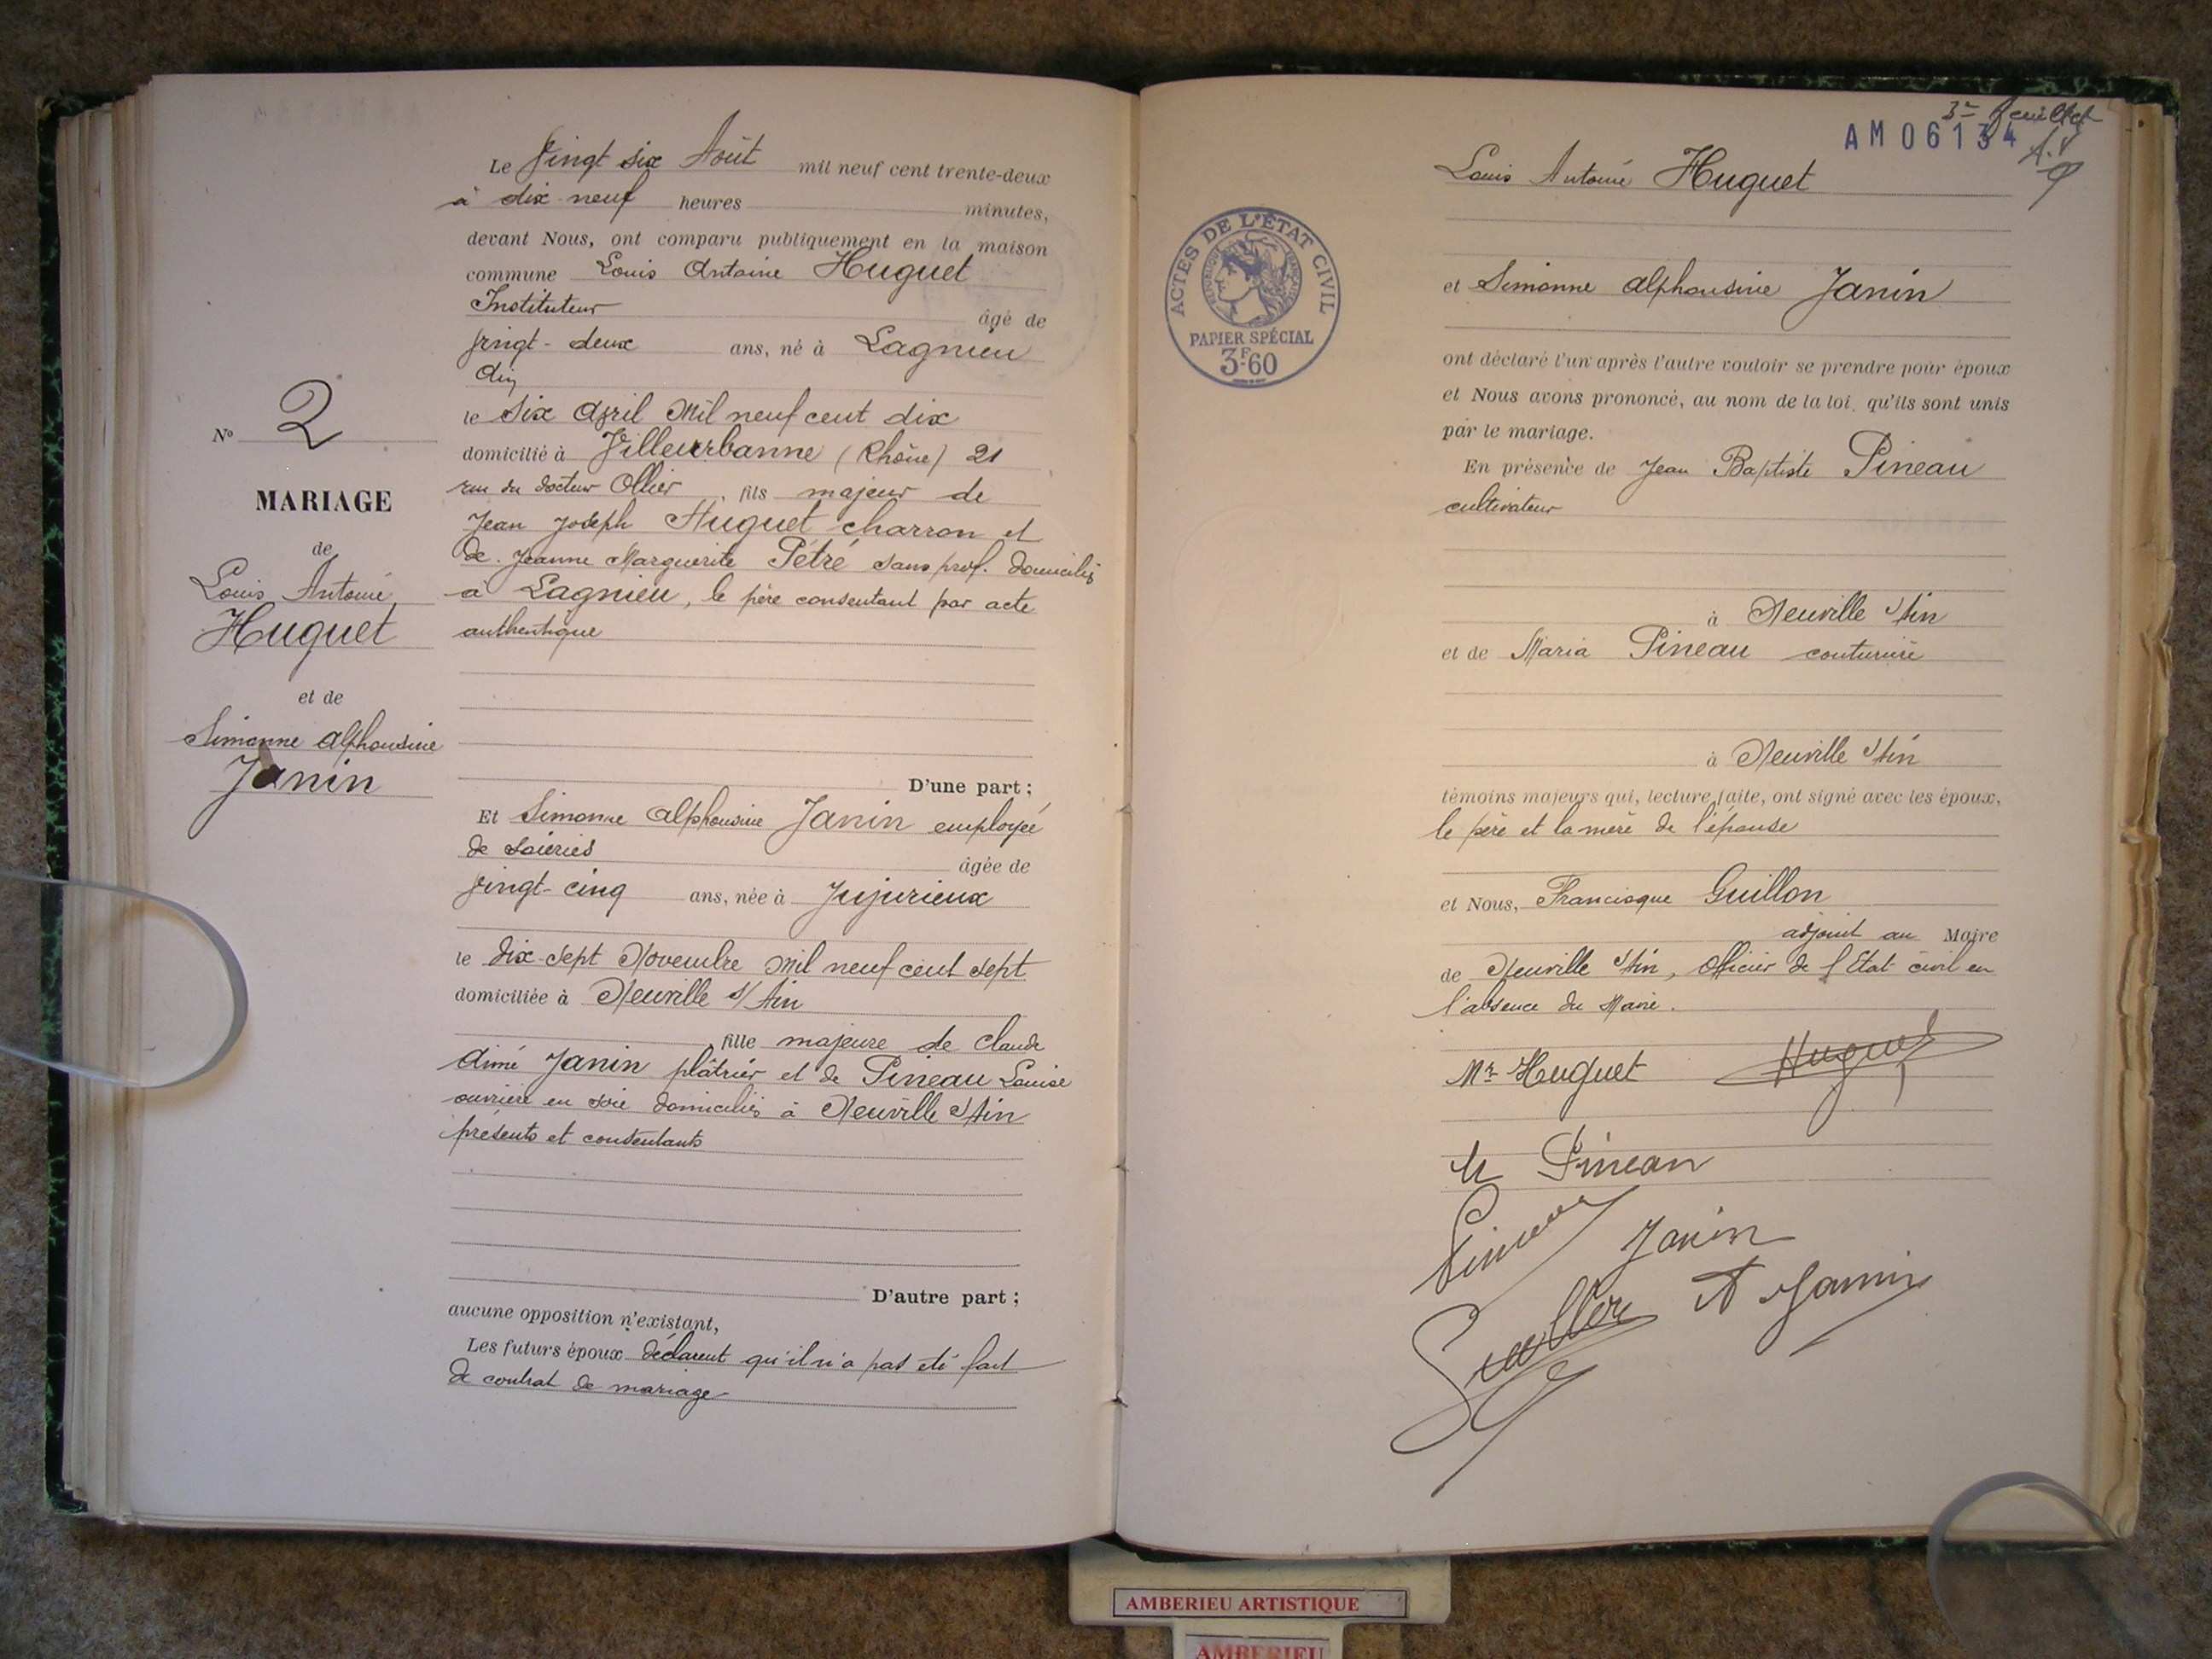 Le Vingt six Août mil neuf cent trente-deux
à dix-neuf heures minutes,
devant Nous, ont comparu publiquement en la maison
commune Louis Antoine Huguet
Instituteur âgé de
Vingt-deux ans, né à Lagnieu
Ain
le Six Avril Mil neuf cent dix
domicilié à Villeurbanne (Rhône) 21
rue du docteur Ollier, fils majeur de
Jean Joseph Huguet charron et
de Jeanne Marguerite Pétré sans prof. domiciliés
à Lagnieu, le père consentant par acte
authentique
D'une part;
Et Simonne Alphonsine Janin employée
de soieries âgée de
Vingt-cinq ans, née à Jujurieux
le dix-sept Novembre Mil neuf cent sept
domiciliée à Neuville s/Ain
, fille majeure de Claude
Aimé Janin plâtrier et de Pineau Louise
ouvrière en soie domiciliés à Neuville s/Ain
présents et consentants
D'autre part;
aucune opposition n'existant,
Les futurs époux déclarent qu'il n'a pas été fait
de contrat de mariage
No 2
MARIAGE
de
Louis Antoine
Huguet
et de
Simonne Alphonsine
Janin
3e feuillet
AM06134
Louis Antoine Huguet
et Simonne Alphonsine Janin
ont déclaré l'un après l'autre vouloir se prendre pour époux
et Nous avons prononcé, au nom de la loi, qu'ils sont unis
par le mariage.
En présence de Jean Baptiste Pineau
cultivateur
à Neuville s/Ain
et de Maria Pineau couturière
à Neuville s/Ain
témoins majeurs qui, lecture faite, ont signé avec les époux,
le père et la mère de l'épouse
et Nous, Francisque Guillon
adjoint au Maire
de Neuville s/Ain, Officier de l'Etat civil en
l'absence du Maire.
Mr Huguet Huguet
M Pineau
Pineau Janin
A Janin
ACTES DE L'ÉTAT CIVIL
RÉPUBLIQUE FRANÇAISE
PAPIER SPÉCIAL
3F60
AMBERIEU ARTISTIQUE
AMBERIEU